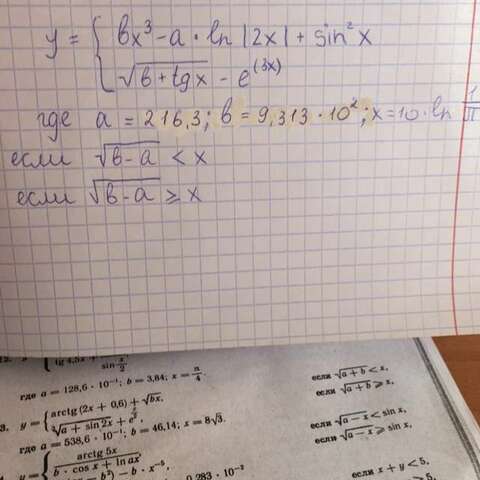 y = { bx³ - a · ln |2x| + sin² x
√(b + tgx) - e^(3x)
где a = 216,3; b = 9,313 · 10²; x = 10 · ln 1/π
если √(b - a) < x
если √(b - a) ⩾ x
tg 4,5x + sin x/2
где a = 128,6 · 10⁻¹; b = 3,84; x = π/4.
если √(a + b) < x,
если √(a + b) ⩾ x,
y = { arctg (2x + 0,6) + √(bx),
a + sin 2x + e
где a = 538,6 · 10⁻¹; b = 46,14; x = 8√3.
если √(a - x) < sin x,
если √(a - x) ⩾ sin x,
arctg 5x
b · cos x + ln ax
- b²) - b · x⁻⁵,
0,283 · 10⁻²
если x + y < 5,